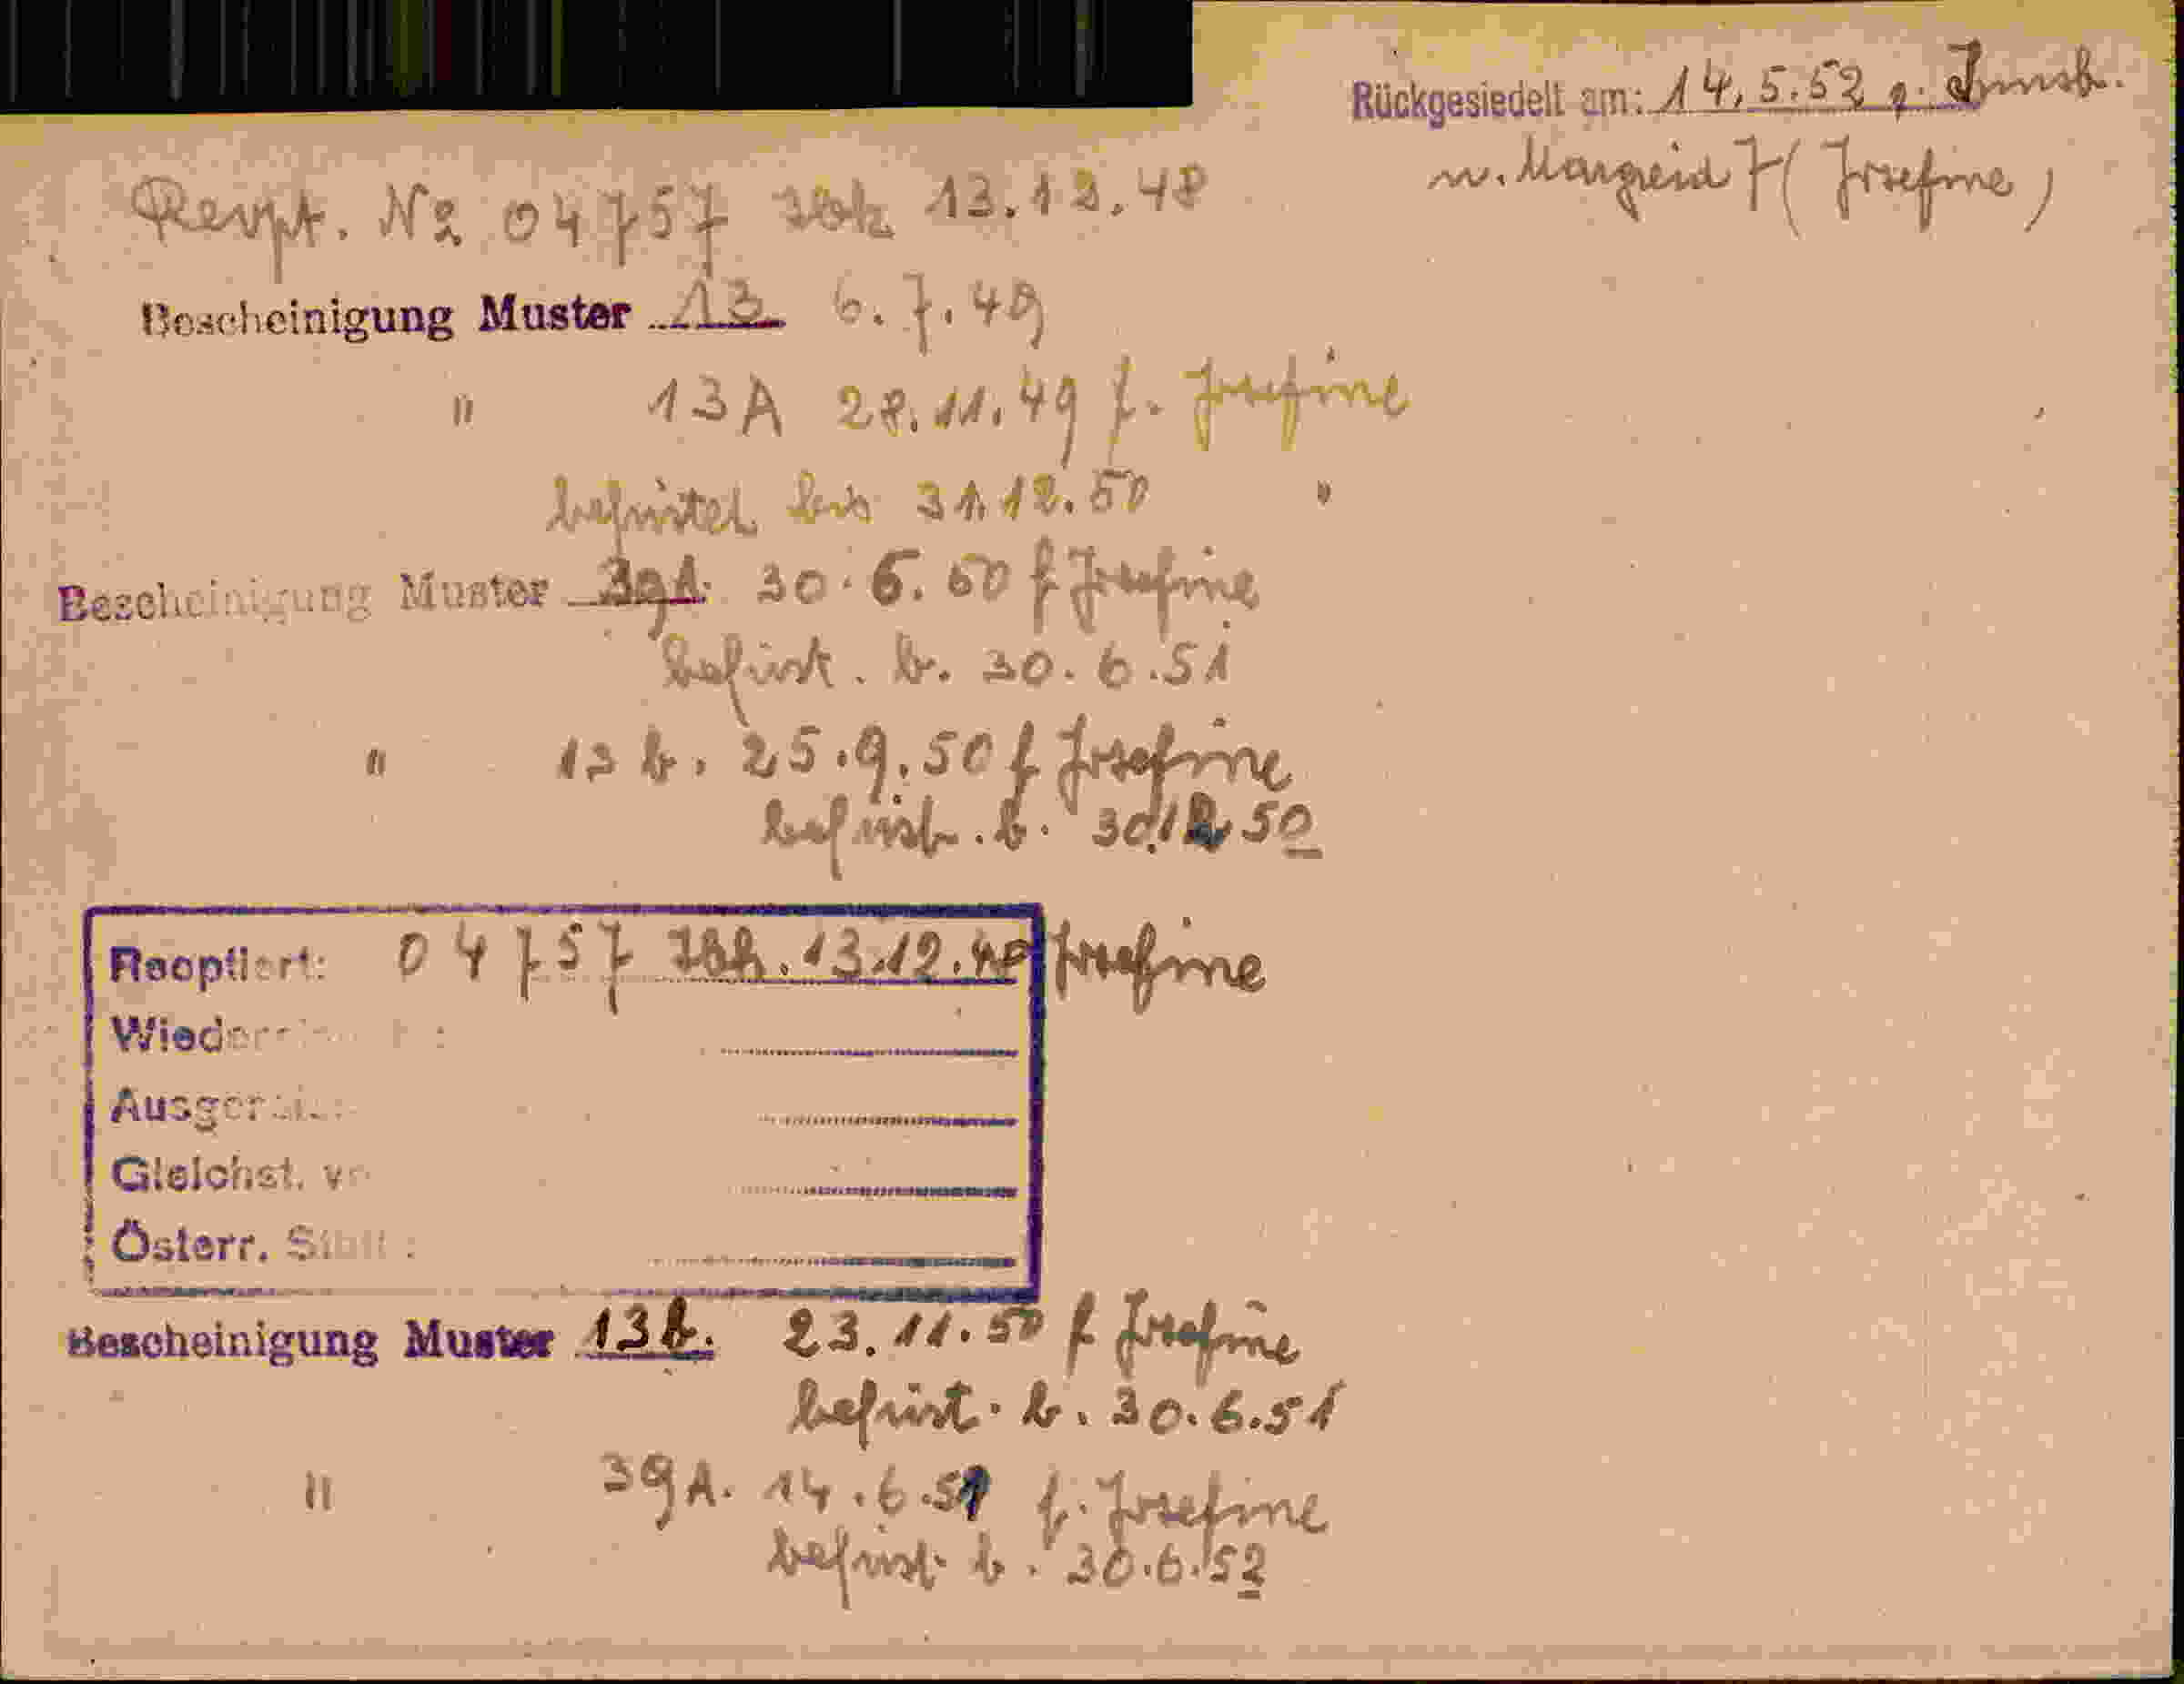 Rückgesiedelt am: 14.5.52 g. Innsb.
n. Margreid 7 (Josefine)
Reopt. No 04757 Ibk 13.12.48
Bescheinigung Muster 13 6.7.49
" 13A 28.11.49 f. Josefine
befristet bis 31.12.50 "
Bescheinigung Muster 39A. 30.6.50 f Josefine
befrist. b. 30.6.51
" 13 b. 25.9.50 f Josefine
befrist. b. 30.12 50
Reoptiert: 04757 Ibk. 13.12.48 Josefine
Gleichst.
Österr.
Bescheinigung Muster 13b. 23.11.50 f Josefine
befrist. b. 30.6.51
" 39A. 14.6.51 f. Josefine
befrist b. 30.6.52